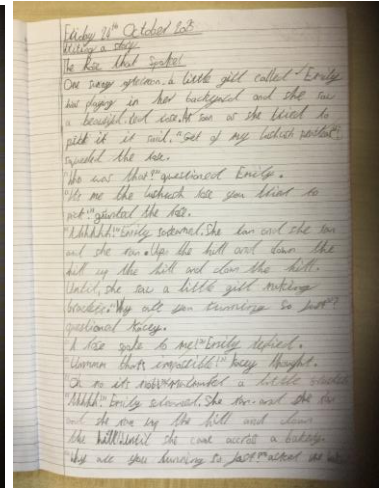 Friday 2 th October
Writing a story
The Rose that Spoke!
One sunny afternoon, a little girl called Emily
was playing in her backyard and she saw
a beautiful red rose. As soon as she tried to
pick it it said. "Get of my
squealed the rose.
"Who was that?" questioned Emily.
"It's me the rose you tried to
pick!" the rose.
Emily screamed. She ran and she ran
and she ran. Up the hill and down the
hill up the hill and down the hill.
Until, she saw a little girl making
"Why are you running so fast"?
questioned Kacey.
"A rose spoke to me!" Emily replied.
"Ummmm that's impossible!" Kacey thought.
"Oh no its not" a little
"Ahhhh!" Emily screamed. She ran and she ran
and she ran up the hill and down
the hill Until she came across a bakery.
"Why are you running so fast?" asked the